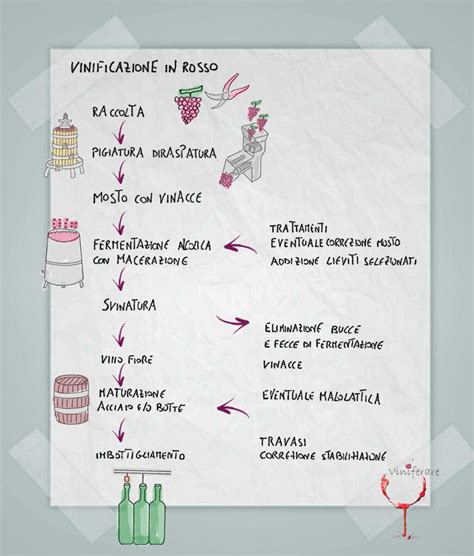 VINIFICAZIONE IN ROSSO
RACCOLTA
PIGIATURA DIRASPATURA
MOSTO CON VINACCE
FERMENTAZIONE ALCOLICA
CON MACERAZIONE
TRATTAMENTI
EVENTUALE CORREZIONE MOSTO
ADDIZIONE LIEVITI SELEZIONATI
SVINATURA
ELIMINAZIONE BUCCE
E FECCE DI FERMENTAZIONE
VINACCE
VINO FIORE
MATURAZIONE
ACCIAIO E/O BOTTE
EVENTUALE MALOLATTICA
IMBOTTIGLIAMENTO
TRAVASI
CORREZIONE STABILIZZAZIONE
Viniferare